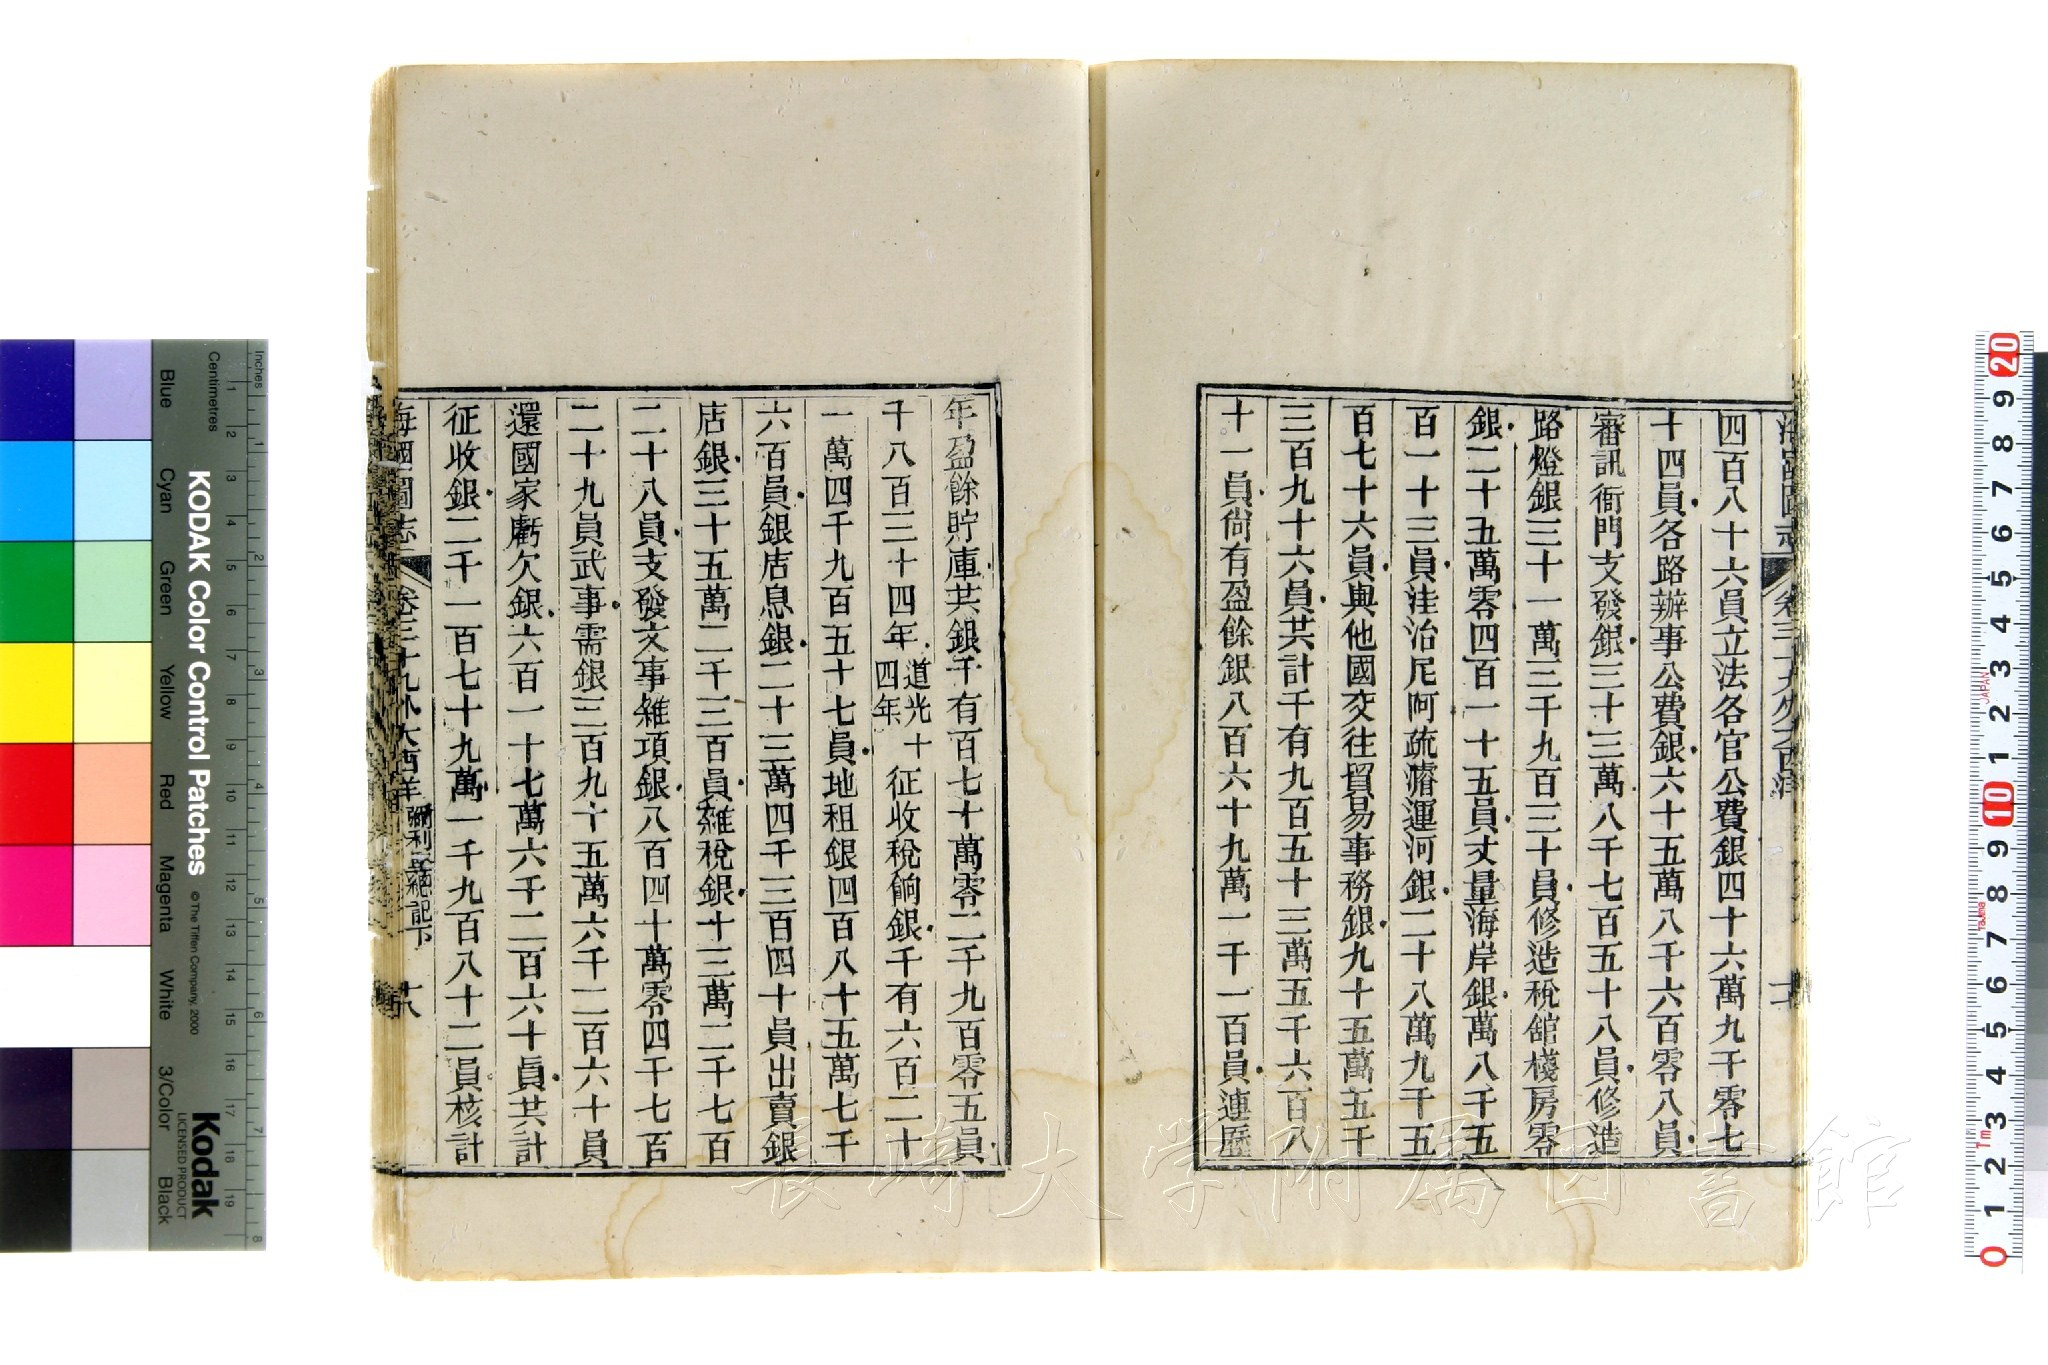 海國圖志
四百八十六員立法各官公費銀四十六萬九千零七
十四員各路辦事公費銀六十五萬八千六百零八員
審訊衙門支發銀三十三萬八千七百五十八員修造
路燈銀三十一萬三千九百三十員修造稅館棧房零
銀二十五萬零四百一十五員丈量海岸銀萬八千五
百一十三員洼治尼阿疏濬運河銀二十八萬九千五
百七十六員與他國交往貿易事務銀九十五萬五千
三百九十六員共計千有九百五十三萬五千六百八
十一員尙有盈餘銀八百六十九萬一千一百員連歷
年盈餘貯庫共銀千有百七十萬零二千九百零五員
千八百三十四年道光十四年征收稅餉銀千有六百二十
一萬四千九百五十七員地租銀四百八十五萬七千
六百員銀店息銀二十三萬四千三百四十員出賣銀
店銀三十五萬二千三百員雜稅銀十三萬二千七百
二十八員支發文事雜項銀八百四十萬零四千七百
二十九員武事需銀三百九十五萬六千二百六十員
還國家虧欠銀六百一十七萬六千二百六十員共計
征收銀二千一百七十九萬一千九百八十二員核計
海國圖志 卷三十九 外大西洋
長崎大学附属図書館
KODAK Color Control Patches
© The Tiffen Company, 2000
Kodak
LICENSED PRODUCT
Inches
Centimetres
Blue
Cyan
Green
Yellow
Red
Magenta
White
3/Color
Black